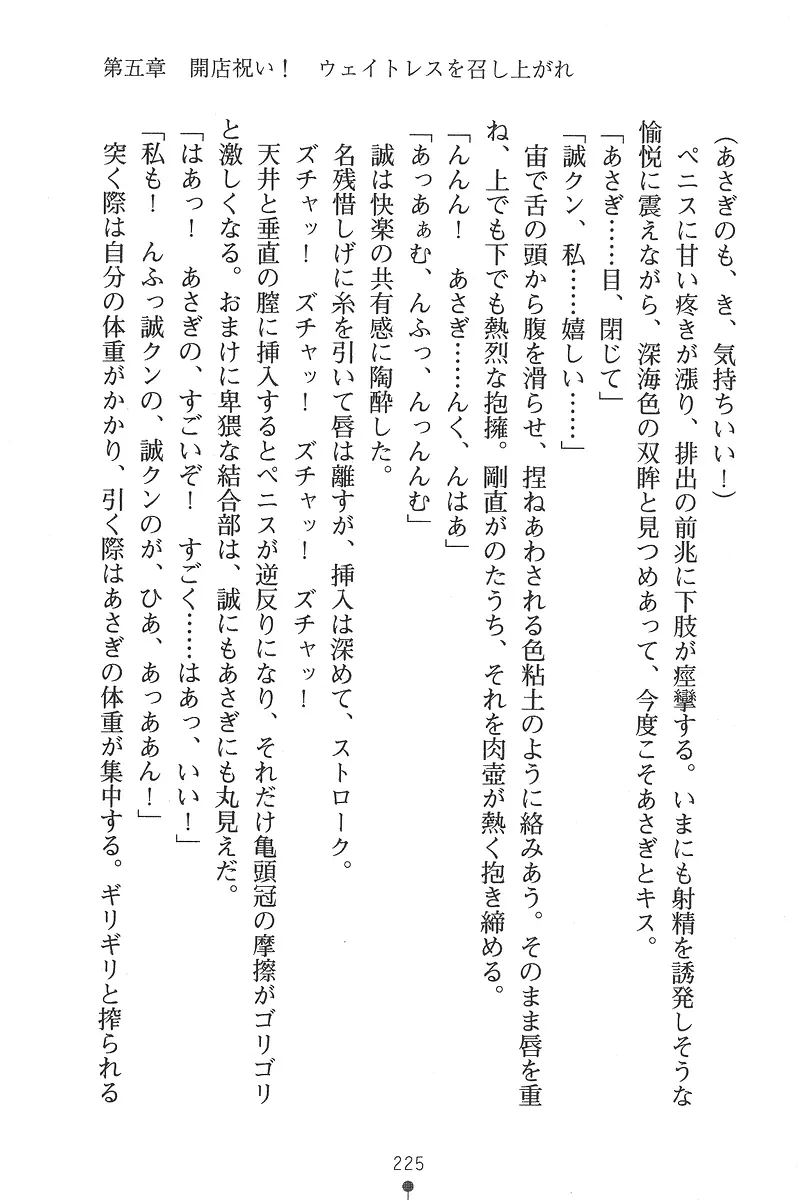 第五章　開店祝い！　ウェイトレスを召し上がれ
（あさぎのも、き、気持ちいい！）
ペニスに甘い疼きが漲り、排出の前兆に下肢が痙攣する。いまにも射精を誘発しそうな
愉悦に震えながら、深海色の双眸と見つめあって、今度こそあさぎとキス。
「あさぎ……目、閉じて」
「誠クン、私……嬉しい……」
宙で舌の頭から腹を滑らせ、捏ねあわされる色粘土のように絡みあう。そのまま唇を重
ね、上でも下でも熱烈な抱擁。剛直がのたうち、それを肉壺が熱く抱き締める。
「んんん！　あさぎ……んく、んはあ」
「あっあぁむ、んふっ、んっんんむ」
誠は快楽の共有感に陶酔した。
名残惜しげに糸を引いて唇は離すが、挿入は深めて、ストローク。
ズチャッ！　ズチャッ！　ズチャッ！　ズチャッ！
天井と垂直の膣に挿入するとペニスが逆反りになり、それだけ亀頭冠の摩擦がゴリゴリ
と激しくなる。おまけに卑猥な結合部は、誠にもあさぎにも丸見えだ。
「はあっ！　あさぎの、すごいぞ！　すごく……はあっ、いい！」
「私も！　んふっ誠クンの、誠クンのが、ひあ、あっああん！」
突く際は自分の体重がかかり、引く際はあさぎの体重が集中する。ギリギリと搾られる
225